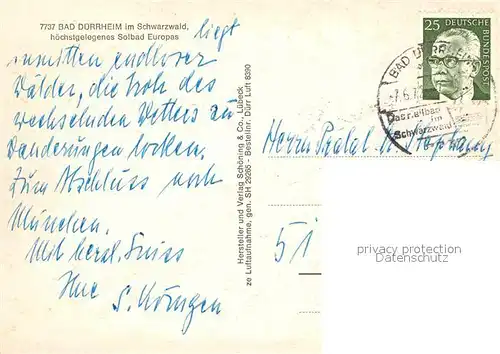 7737 BAD DÜRRHEIM im Schwarzwald,
höchstgelegenes Solbad Europas
liegt
inmitten endloser
Wälder, die trotz des
wechselnden Wetters zu
Wanderungen locken.
Zum Abschluss noch
München.
Mit herzl. Gruss
Ihre
Hersteller und Verlag Schöning & Co., Lübeck
ze Luftaufnahme, gen. SH 29265 - Bestellnr. Dürr Luft 8390
25 DEUTSCHE BUNDESPOST
BAD DÜRRHEIM
im
Schwarzwald
Herrn Prälat
51
privacy protection
Datenschutz